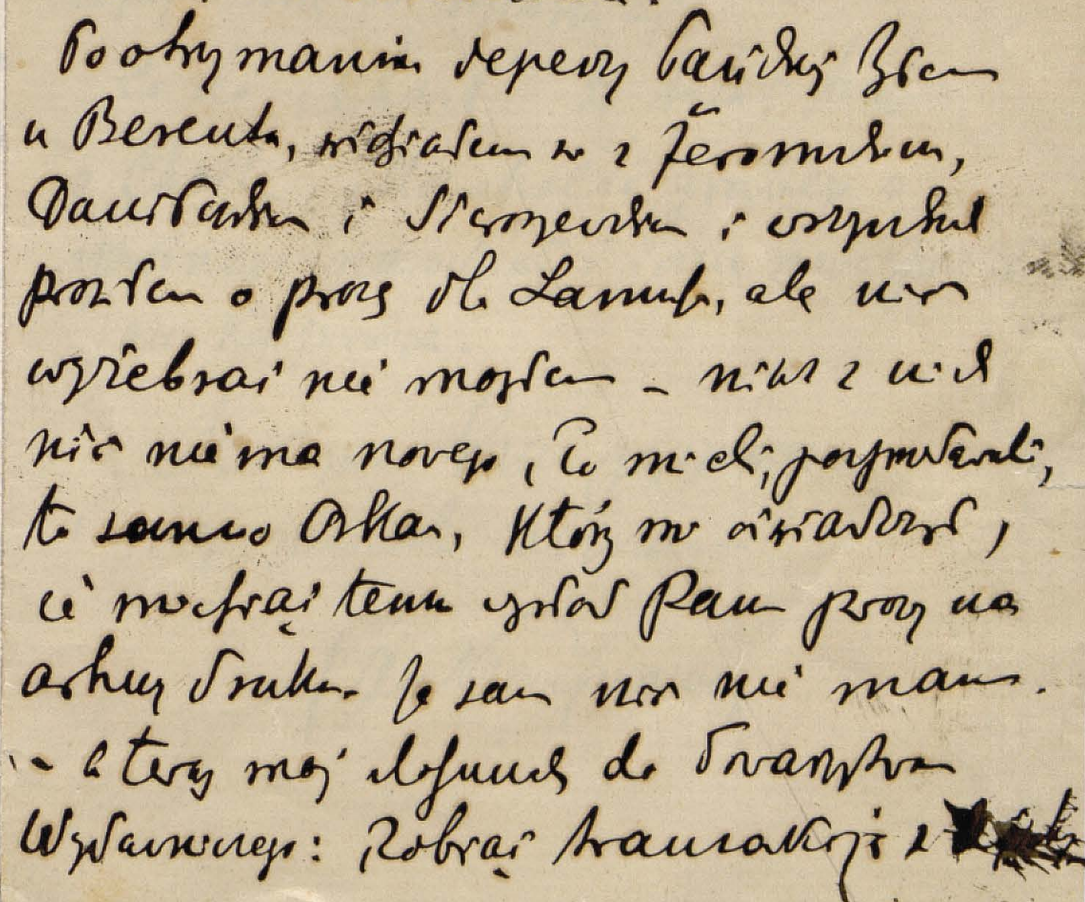 Po otrzymaniu depeszy Pańskiej byłem
u Berenta, widziałem się z Żeromskim,
Daniłowskim i Sieroszewskim i wszystkich
prosiłem o prozę dla Lamusa, ale nic
wyżebrać nie mogłem – nikt z nich
nic nie ma nowego, co mieli, posprzedawali,
to samo Orkan, który mi oświadczył,
że miesiąc temu wysłał Panu prozy na
arkusz druku. Ja sam nic nie mam.
– A teraz mój stosunek do Towarzystwa
Wydawniczego: Zobrać transakcję z